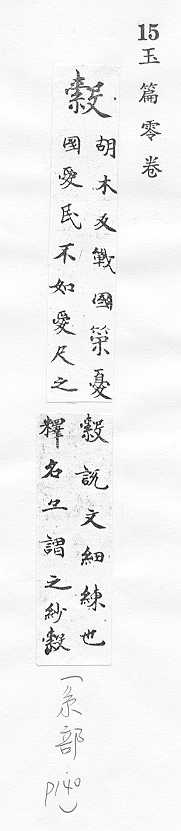 15 玉篇零卷
縠
胡木反戰國策憂
國愛民不如愛尺之
縠說文細練也
釋名謂之紗縠
(糸部 P140)